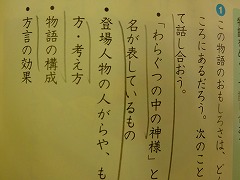 ❶ この物語のおもしろさは、ど
ころにあるだろう。次のこと
て話し合おう。
●「わらぐつの中の神様」と
名が表しているもの
●登場人物の人がらや、も
方・考え方
●物語の構成
●方言の効果